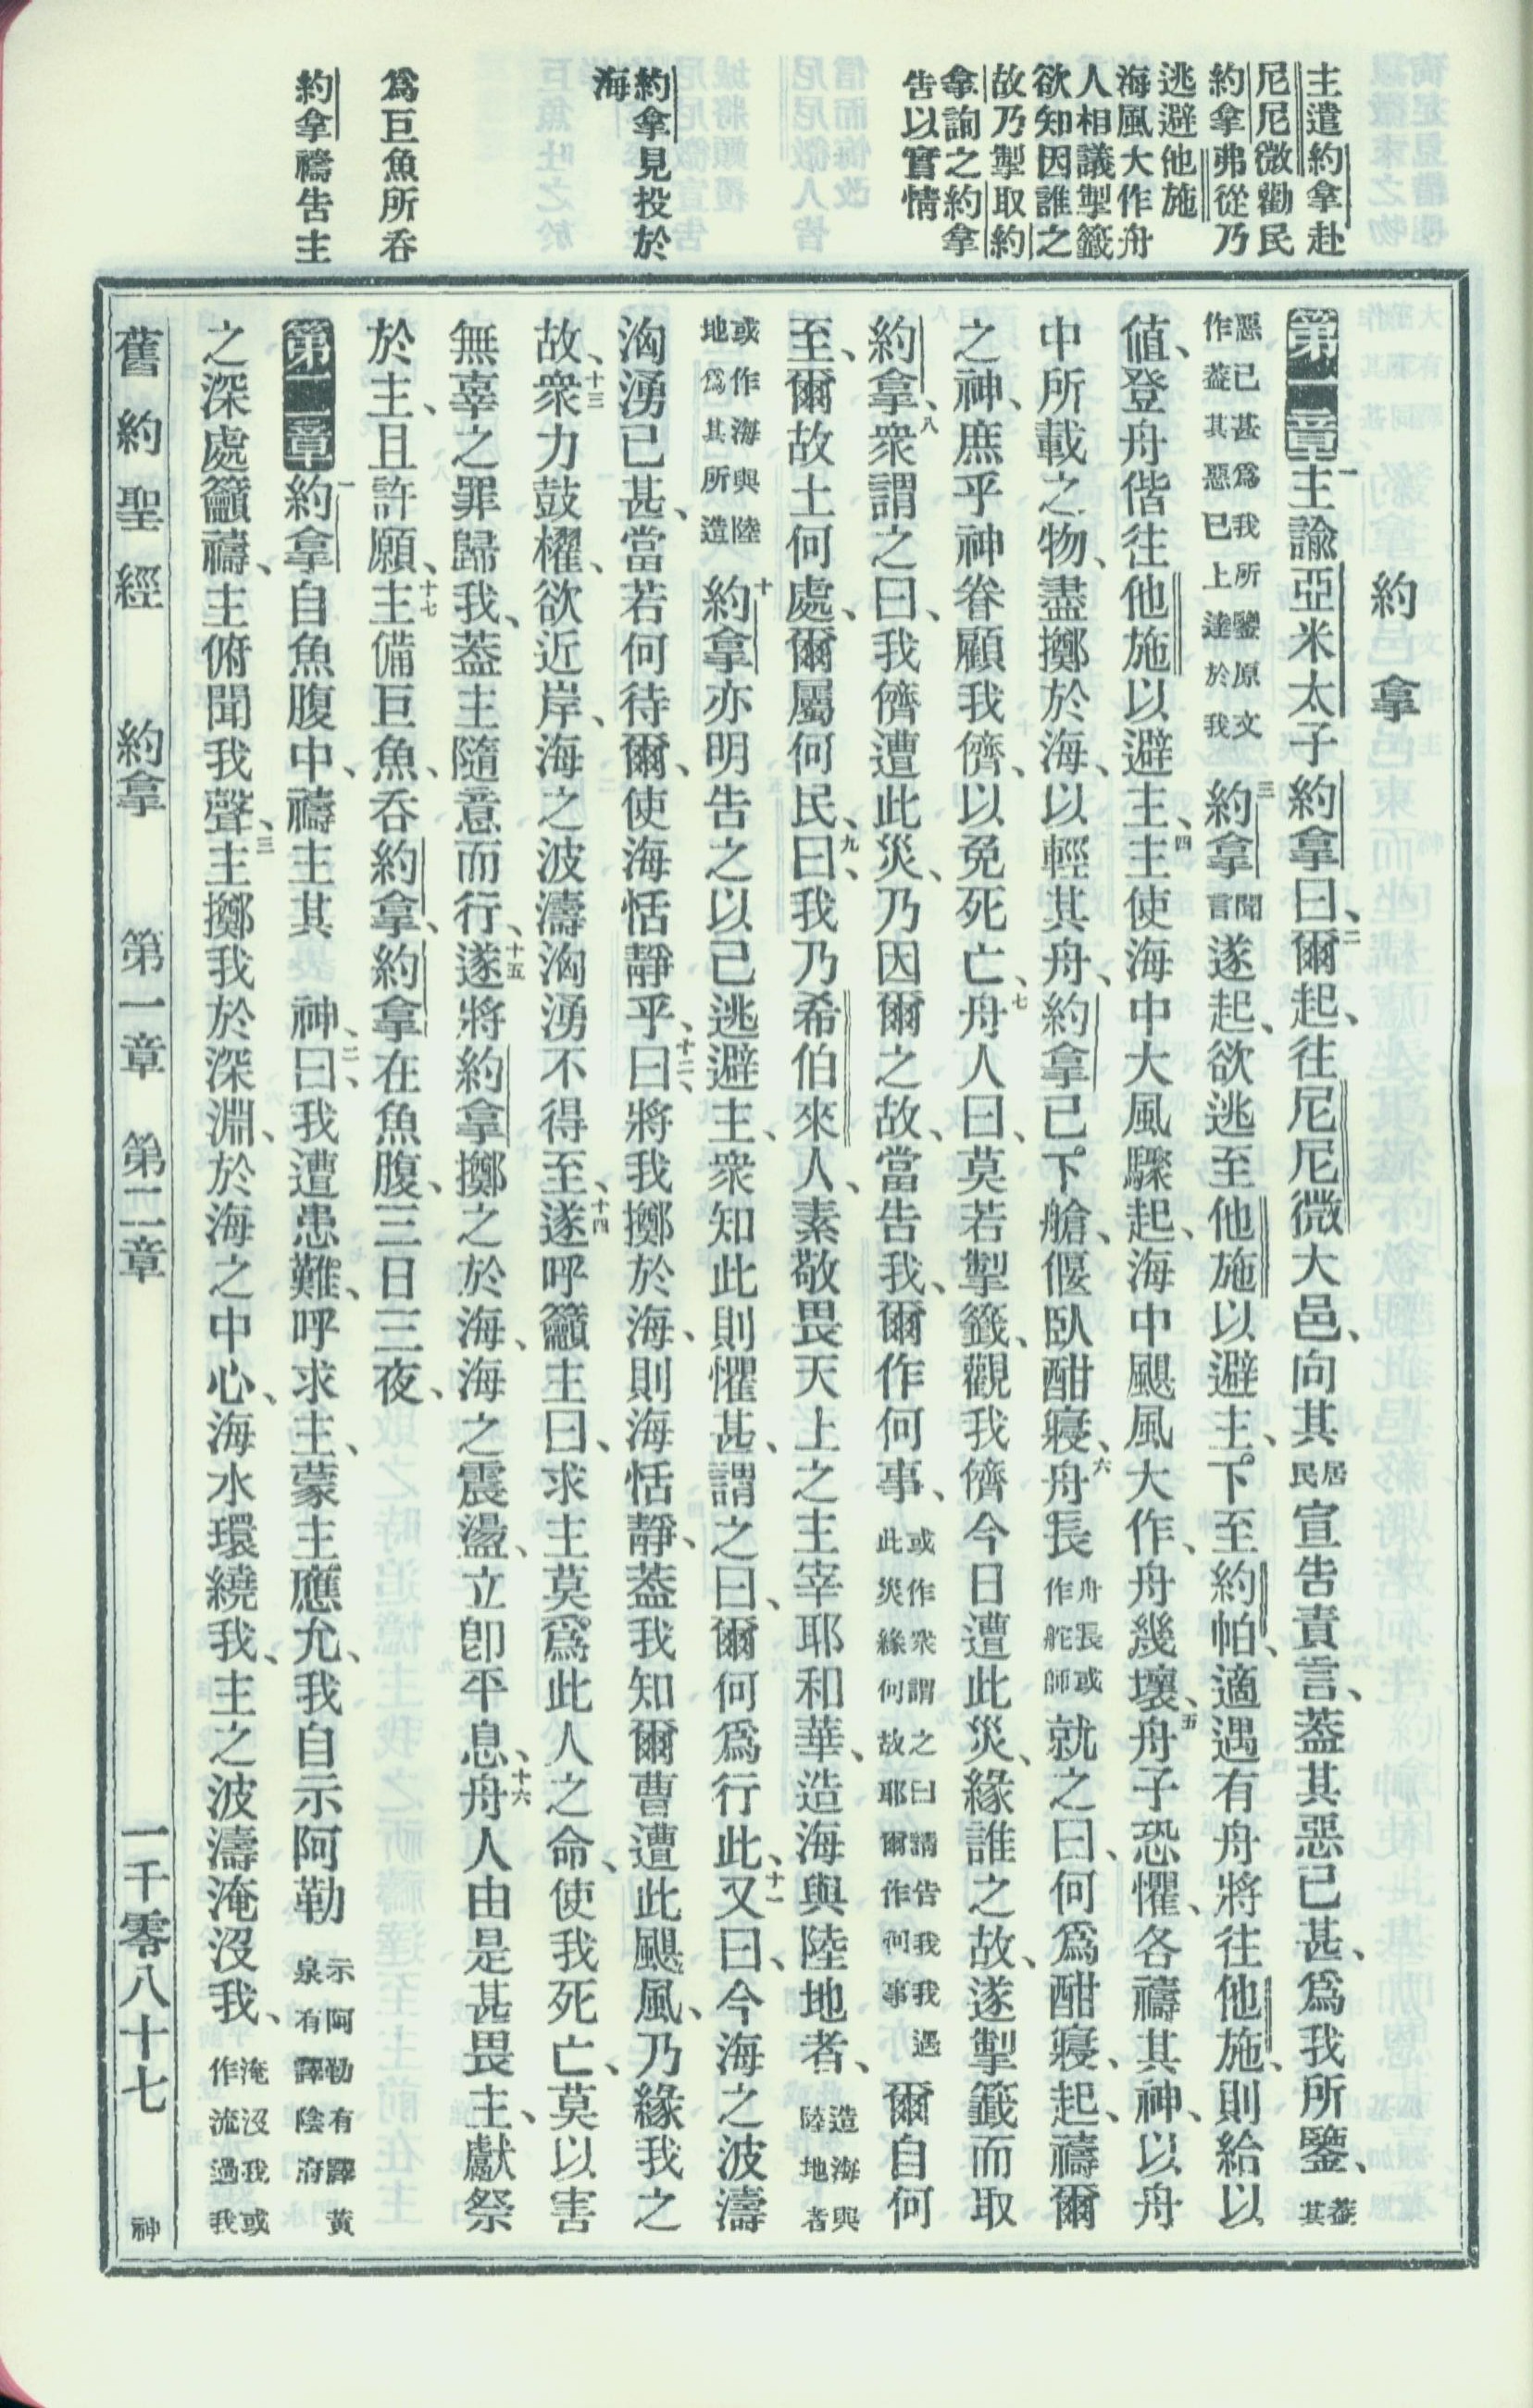 主遣約拿赴
尼尼微勸民
約拿弗從乃
逃避他施
海風大作舟
人相議掣籤
欲知因誰之
故乃掣取約
拿詢之約拿
告以實情
約拿見投於
海
爲巨魚所吞
約拿禱告主
約拿
第一章一主諭亞米太子約拿曰、二爾起、往尼尼微大邑、向其居民宣告責言、蓋其惡已甚、爲我所鑒、蓋其
惡已甚爲我所鑒原文作蓋其惡已上達於我三約拿聞言遂起、欲逃至他施以避主、下至約帕、適遇有舟將往他施、則給以
值、登舟偕往他施以避主、四主使海中大風驟起、海中颶風大作、舟幾壞、五舟子恐懼、各禱其神、以舟
中所載之物、盡擲於海、以輕其舟、約拿已下艙、偃臥酣寢、六舟長舟長或作舵師就之曰、何爲酣寢、起、禱爾
之神、庶乎神眷顧我儕、以免死亡、七舟人曰、莫若掣籤、觀我儕今日遭此災、緣誰之故、遂掣籤而取
約拿、八衆謂之曰、我儕遭此災、乃因爾之故、當告我、爾作何事、或作衆謂之曰請告我我遇此災緣何故耶爾作何事爾自何
至、爾故土何處、爾屬何民、九曰、我乃希伯來人、素敬畏天上之主宰耶和華、造海與陸地者、造海與陸地者
或作海與陸地爲其所造十約拿亦明告之以己逃避主、衆知此則懼甚、謂之曰、爾何爲行此、十一又曰、今海之波濤
洶湧已甚、當若何待爾、使海恬靜乎、十二曰、將我擲於海、則海恬靜、蓋我知爾曹遭此颶風、乃緣我之
故、十三衆力鼓櫂、欲近岸、海之波濤洶湧不得至、十四遂呼籲主曰、求主莫爲此人之命、使我死亡、莫以害
無辜之罪歸我、蓋主隨意而行、十五遂將約拿擲之於海、海之震盪、立卽平息、十六舟人由是甚畏主、獻祭
於主、且許願、十七主備巨魚、吞約拿、約拿在魚腹、三日三夜、
第二章一約拿自魚腹中、禱主其 神、二曰、我遭患難、呼求主、蒙主應允、我自示阿勒示阿勒有譯黃泉有譯陰府
之深處籲禱、主俯聞我聲、三主擲我於深淵、於海之中心、海水環繞我、主之波濤淹沒我、淹沒我或作流過我
舊約聖經 約拿 第一章 第二章 一千零八十七 神